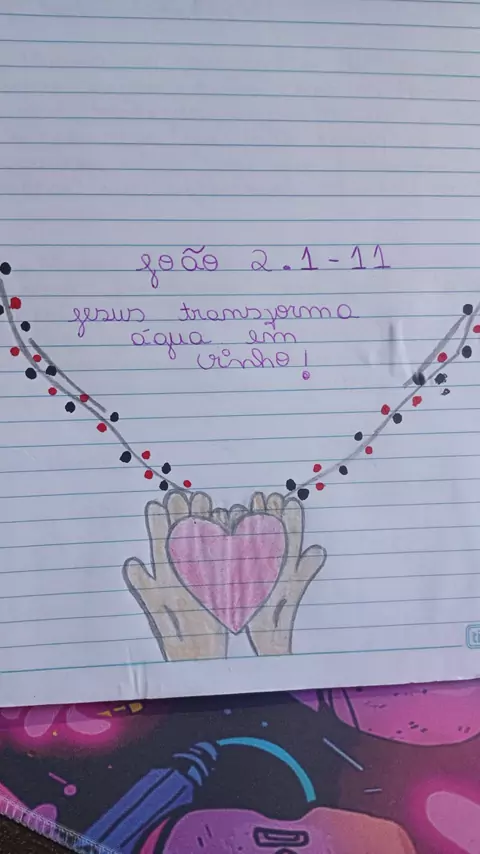 João 2.1-11
Jesus transforma
água em
vinho!